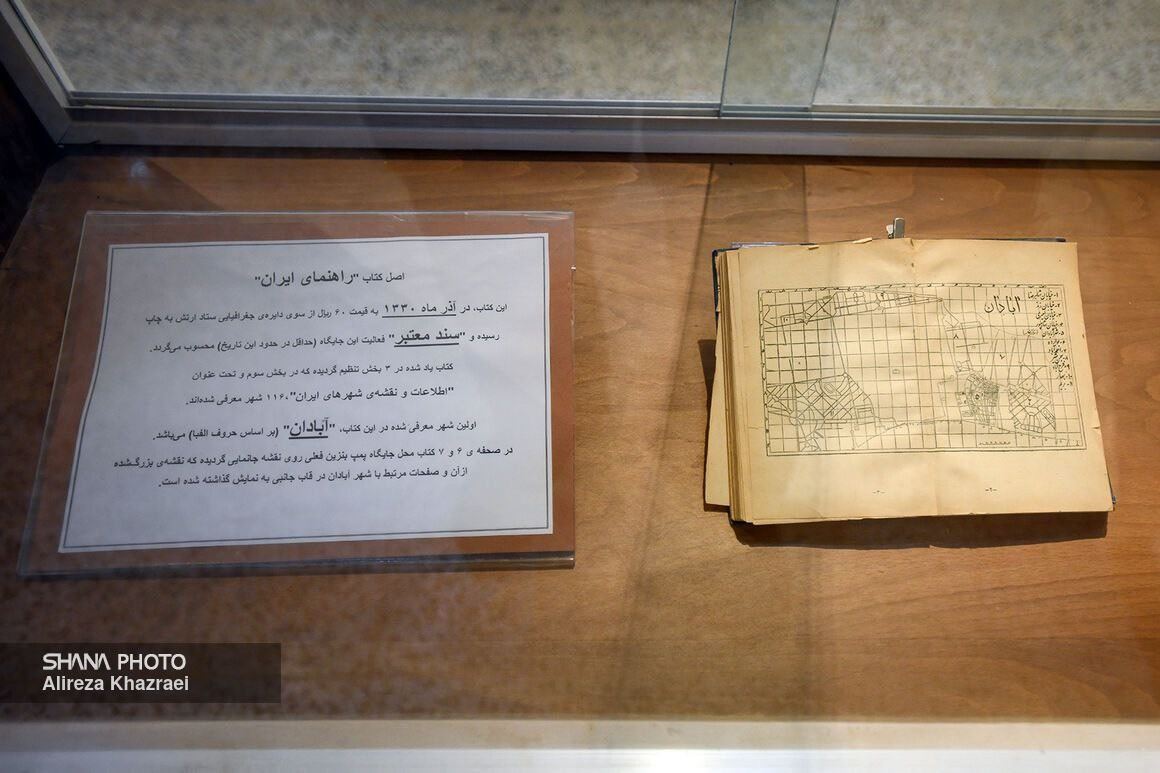 اصل کتاب "راهنمای ایران"
این کتاب، در آذر ماه ۱۳۳۰ به قیمت ۶۰ ریال از سوی دایره‌ی جغرافیایی ستاد ارتش به چاپ
رسیده و "سند معتبر" فعالیت این جایگاه (حداقل در حدود این تاریخ) محسوب می‌گردد.
کتاب یاد شده در ۳ بخش تنظیم گردیده که در بخش سوم و تحت عنوان
"اطلاعات و نقشه‌ی شهرهای ایران"، ۱۱۶ شهر معرفی شده‌اند.
اولین شهر معرفی شده در این کتاب، "آبادان" (بر اساس حروف الفبا) می‌باشد.
در صفحه ی ۶ و ۷ کتاب محل جایگاه پمپ بنزین فعلی روی نقشه جانمایی گردیده که نقشه‌ی بزرگ‌شده
ازآن و صفحات مرتبط با شهر آبادان در قاب جانبی به نمایش گذاشته شده است.
آبادان
SHANA PHOTO
Alireza Khazraei